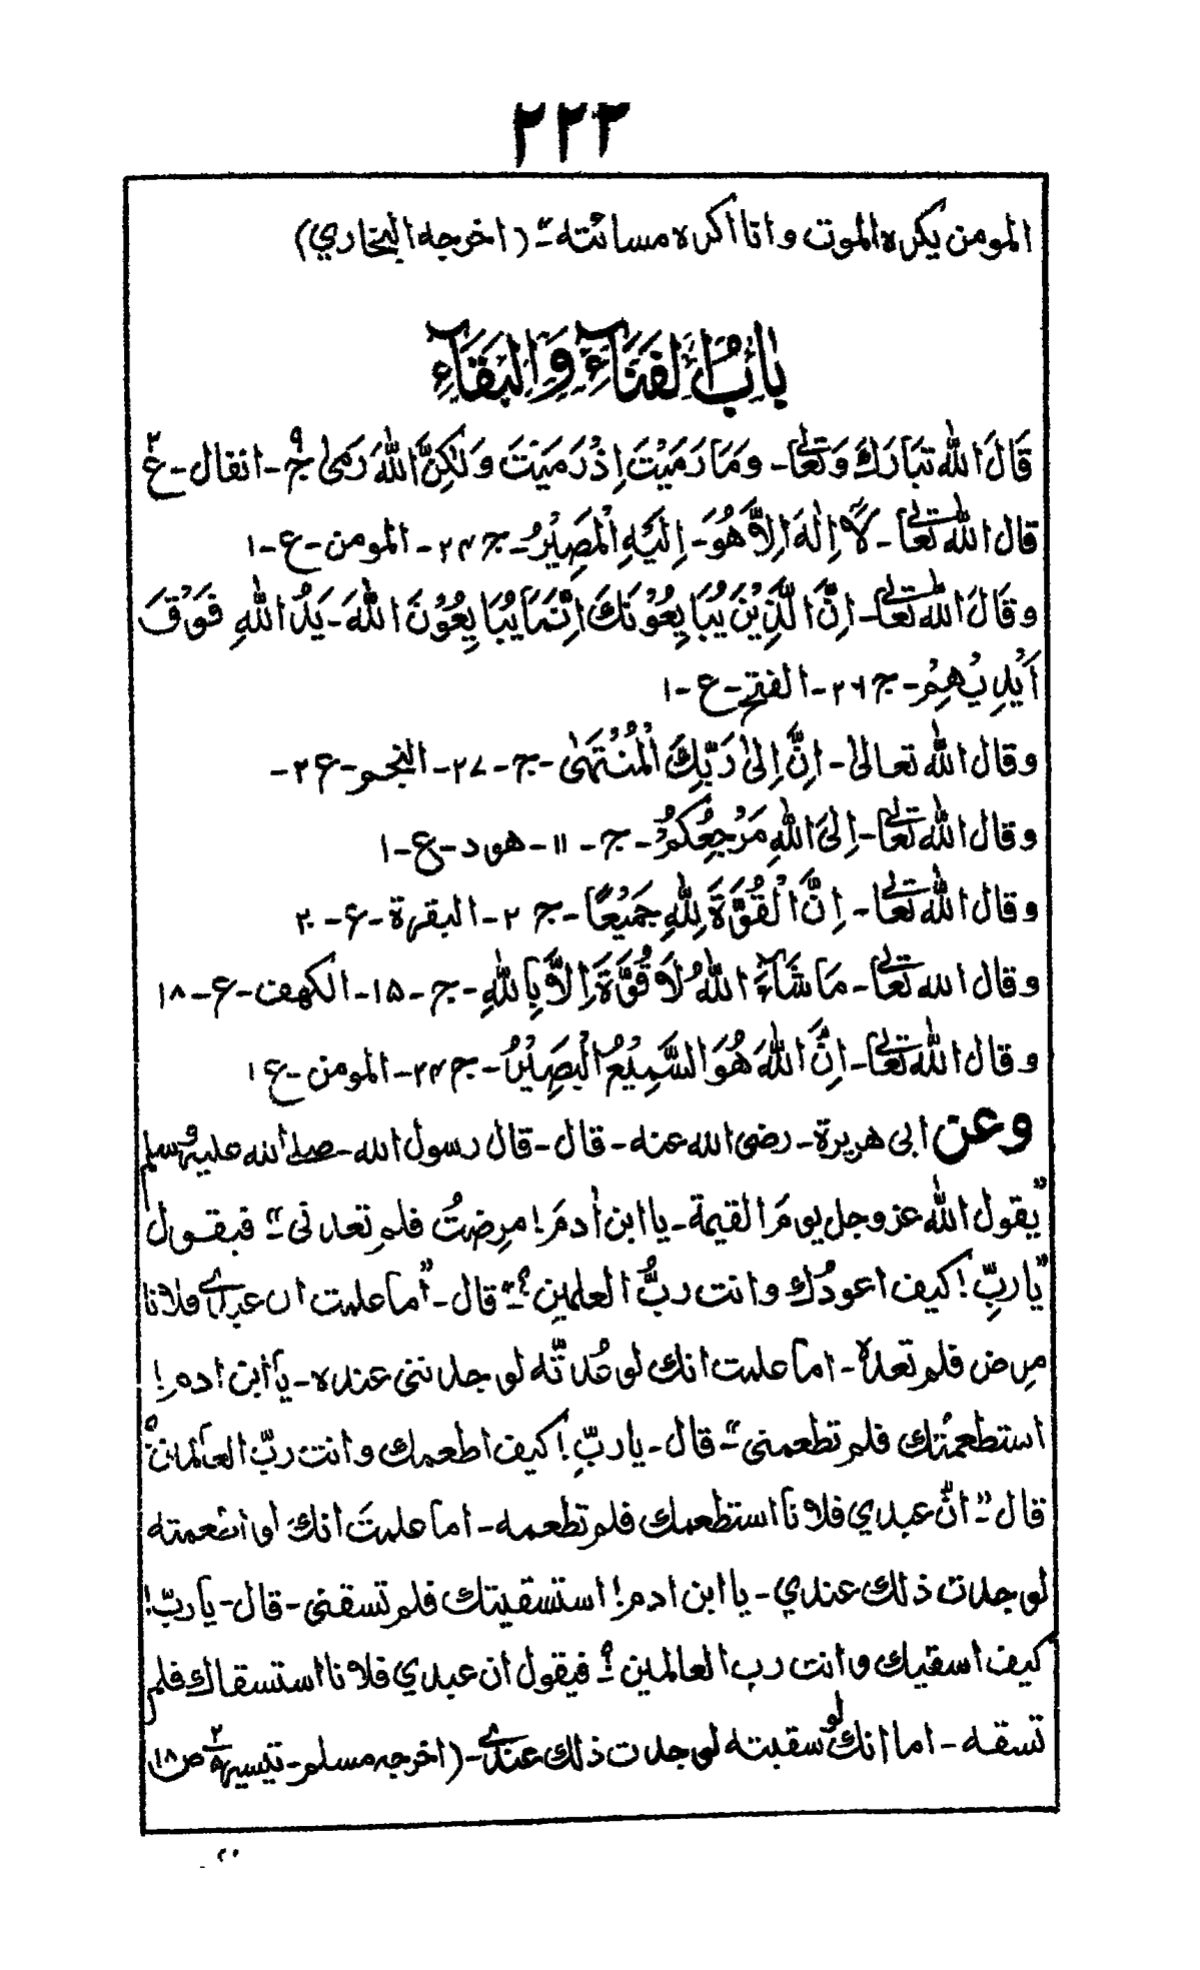 ٢٢٣
المومن يكره الموت وانا اكره مسائته"- (اخرجه البخاري)
بَابُ الْفَنَآءِ وَالْبَقَآءِ
قَالَ اللهُ تَبَارَكَ وَتَعَالٰى- وَمَا رَمَيْتَ اِذْ رَمَيْتَ وَلٰكِنَّ اللهَ رَمٰى ج ٩- انفال- ع ٢
قال الله تعالٰى- لَآ اِلٰهَ اِلَّا هُوَ- اِلَيْهِ الْمَصِيْرُ- ج ٢٤- المومن- ع- ١
وقَالَ اللهُ تعالٰى- اِنَّ الَّذِيْنَ يُبَايِعُوْنَكَ اِنَّمَا يُبَايِعُوْنَ اللهَ- يَدُ اللهِ فَوْقَ
اَيْدِيْهِمْ- ج ٢٦- الفتح- ع- ١
وقال الله تعالىٰ- اِنَّ اِلىٰ رَبِّكَ الْمُنْتَهَىٰ- ج- ٢٧- النجم- ع ٢-
وقال الله تعالٰى- اِلَى اللهِ مَرْجِعُكُمْ- ج- ١١- هود- ع- ١
وقال الله تعالٰى- اِنَّ الْقُوَّةَ لِلّٰهِ جَمِيْعًا- ج ٢- البقرة- ع- ٢٠
وقال الله تعالٰى- مَا شَآءَ اللهُ لَا قُوَّةَ اِلَّا بِاللهِ- ج- ١٥- الكهف- ع- ١٨
وقال الله تعالٰى- اِنَّ اللهَ هُوَ السَّمِيْعُ الْبَصِيْرُ- ج ٢٤- المومن- ع ١
وعن ابى هريرة- رضى الله عنه- قال- قال رسول الله- صلے الله عليه وسلم
"يقول الله عز وجل يومَ القيمة- يا ابن اٰدمَ! مرِضتُ فلم تعدنى"- فيقول
"يا ربِّ! كيف اعودُك وانت ربُّ العلمين؟"- قال- "أما علمت ان عبدى فلانا
مرِض فلم تعده- اما علمت انك لو عُدتَّه لوجدتنى عنده- يا ابن ادم!
استطعمتُك فلم تطعمنى"- قال- يا ربِّ! كيف اطعمك وانت ربّ العالمين؟"
قال"- انّ عبدي فلانا استطعمك فلم تطعمه- اما علمتَ انكَ لو اطعمته
لوجدت ذلك عندي- يا ابن ادم! استسقيتك فلم تسقنى- قال- يا ربّ!
كيف اسقيك وانت رب العالمين؟- فيقول ان عبدي فلانا استسقاك فلم
تسقه- اما انك لو سقيته لوجدت ذلك عندى- (اخرجه مسلم- تيسير